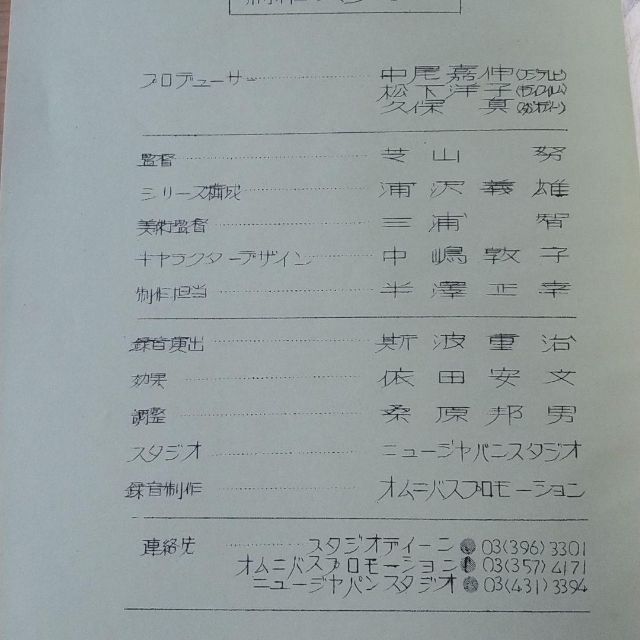 プロデューサー 中尾嘉伸(フジテレビ)
松下洋子
久保 真
監督 芝山 努
シリーズ構成 浦沢義雄
美術監督 三浦 智
キャラクターデザイン 中嶋敦子
制作担当 半澤正幸
録音演出 斯波重治
効果 依田安文
調整 桑原邦男
スタジオ ニュージャパンスタジオ
録音制作 オムニバスプロモーション
連絡先 スタジオディーン 03(396)3301
オムニバスプロモーション 03(357)4171
ニュージャパンスタジオ 03(431)3394